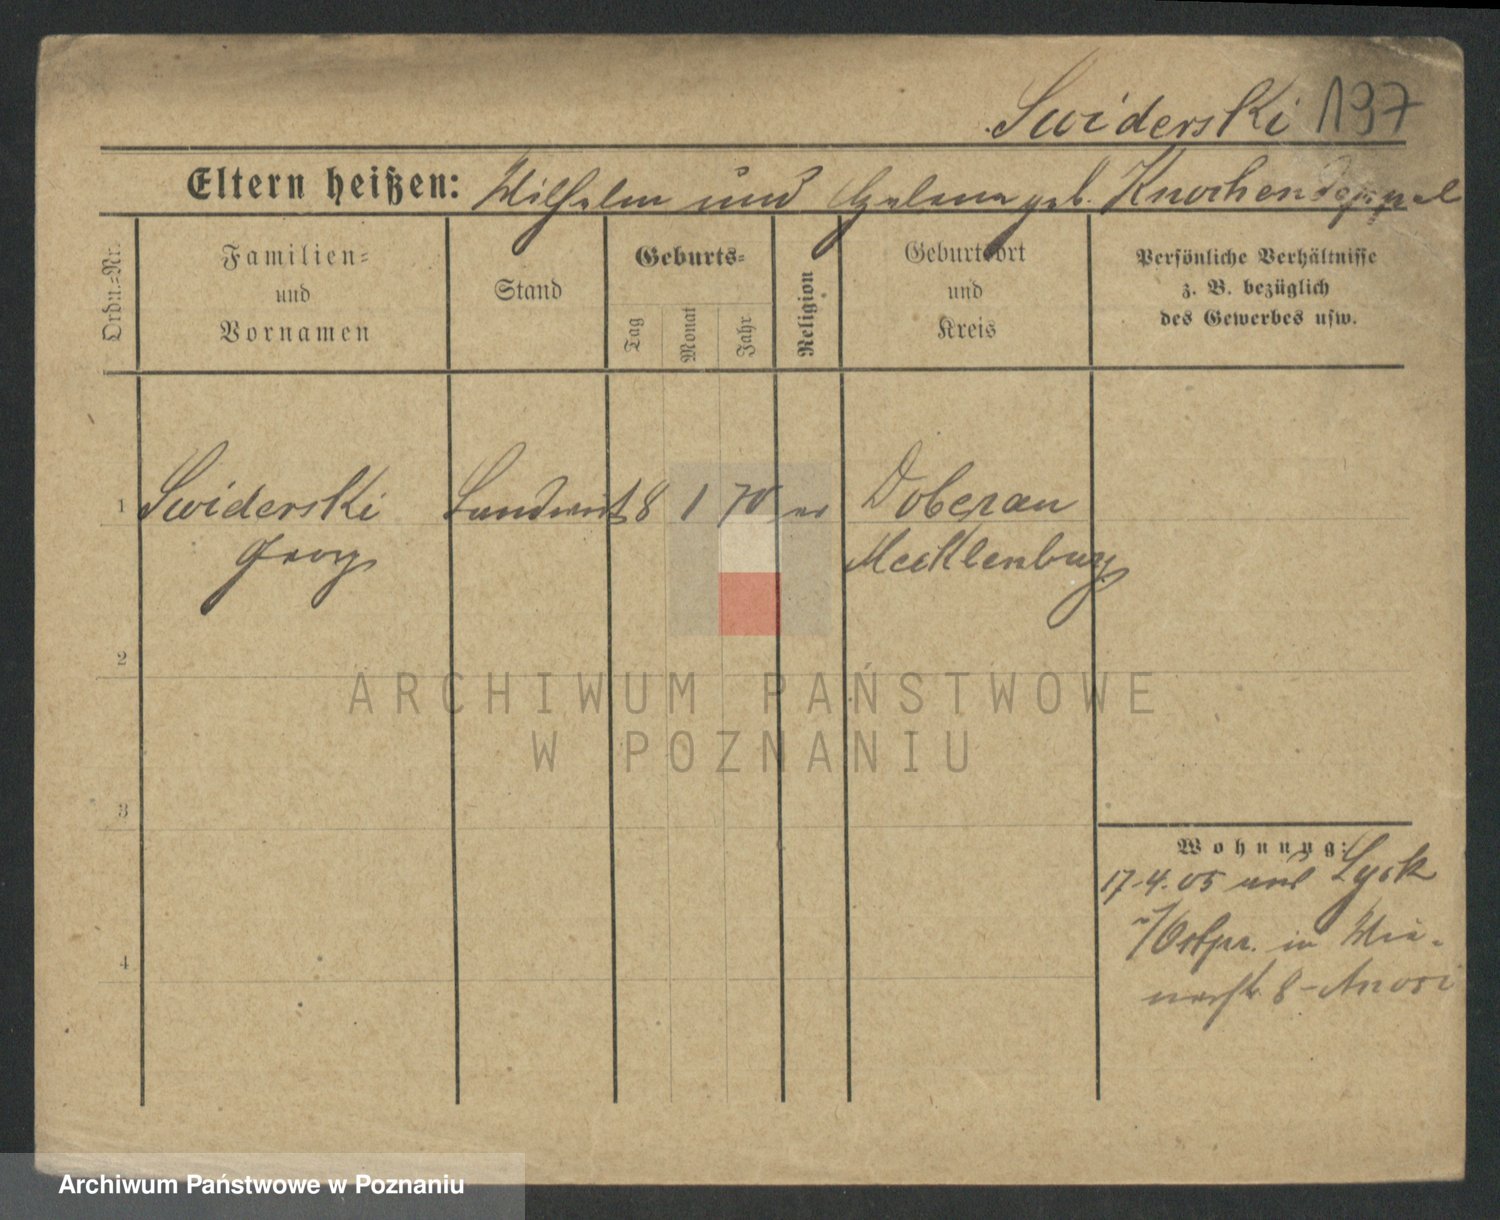 Swiderski 197
Eltern heißen: Wilhelm und Helene geb. Knochendöppel
Ordn.=Nr.
Familien=
und
Vornamen
Stand
Geburts=
Tag
Monat
Jahr
Religion
Geburtsort
und
Kreis
Persönliche Verhältnisse
z. B. bezüglich
des Gewerbes usw.
1 Swiderski Landwirt 8 1 70 ev Doberan
Georg Mecklenburg
2
3
4
Wohnung:
17.4.05 aus Lyck
/Ostpr. in
8
ARCHIWUM PAŃSTWOWE
W POZNANIU
Archiwum Państwowe w Poznaniu